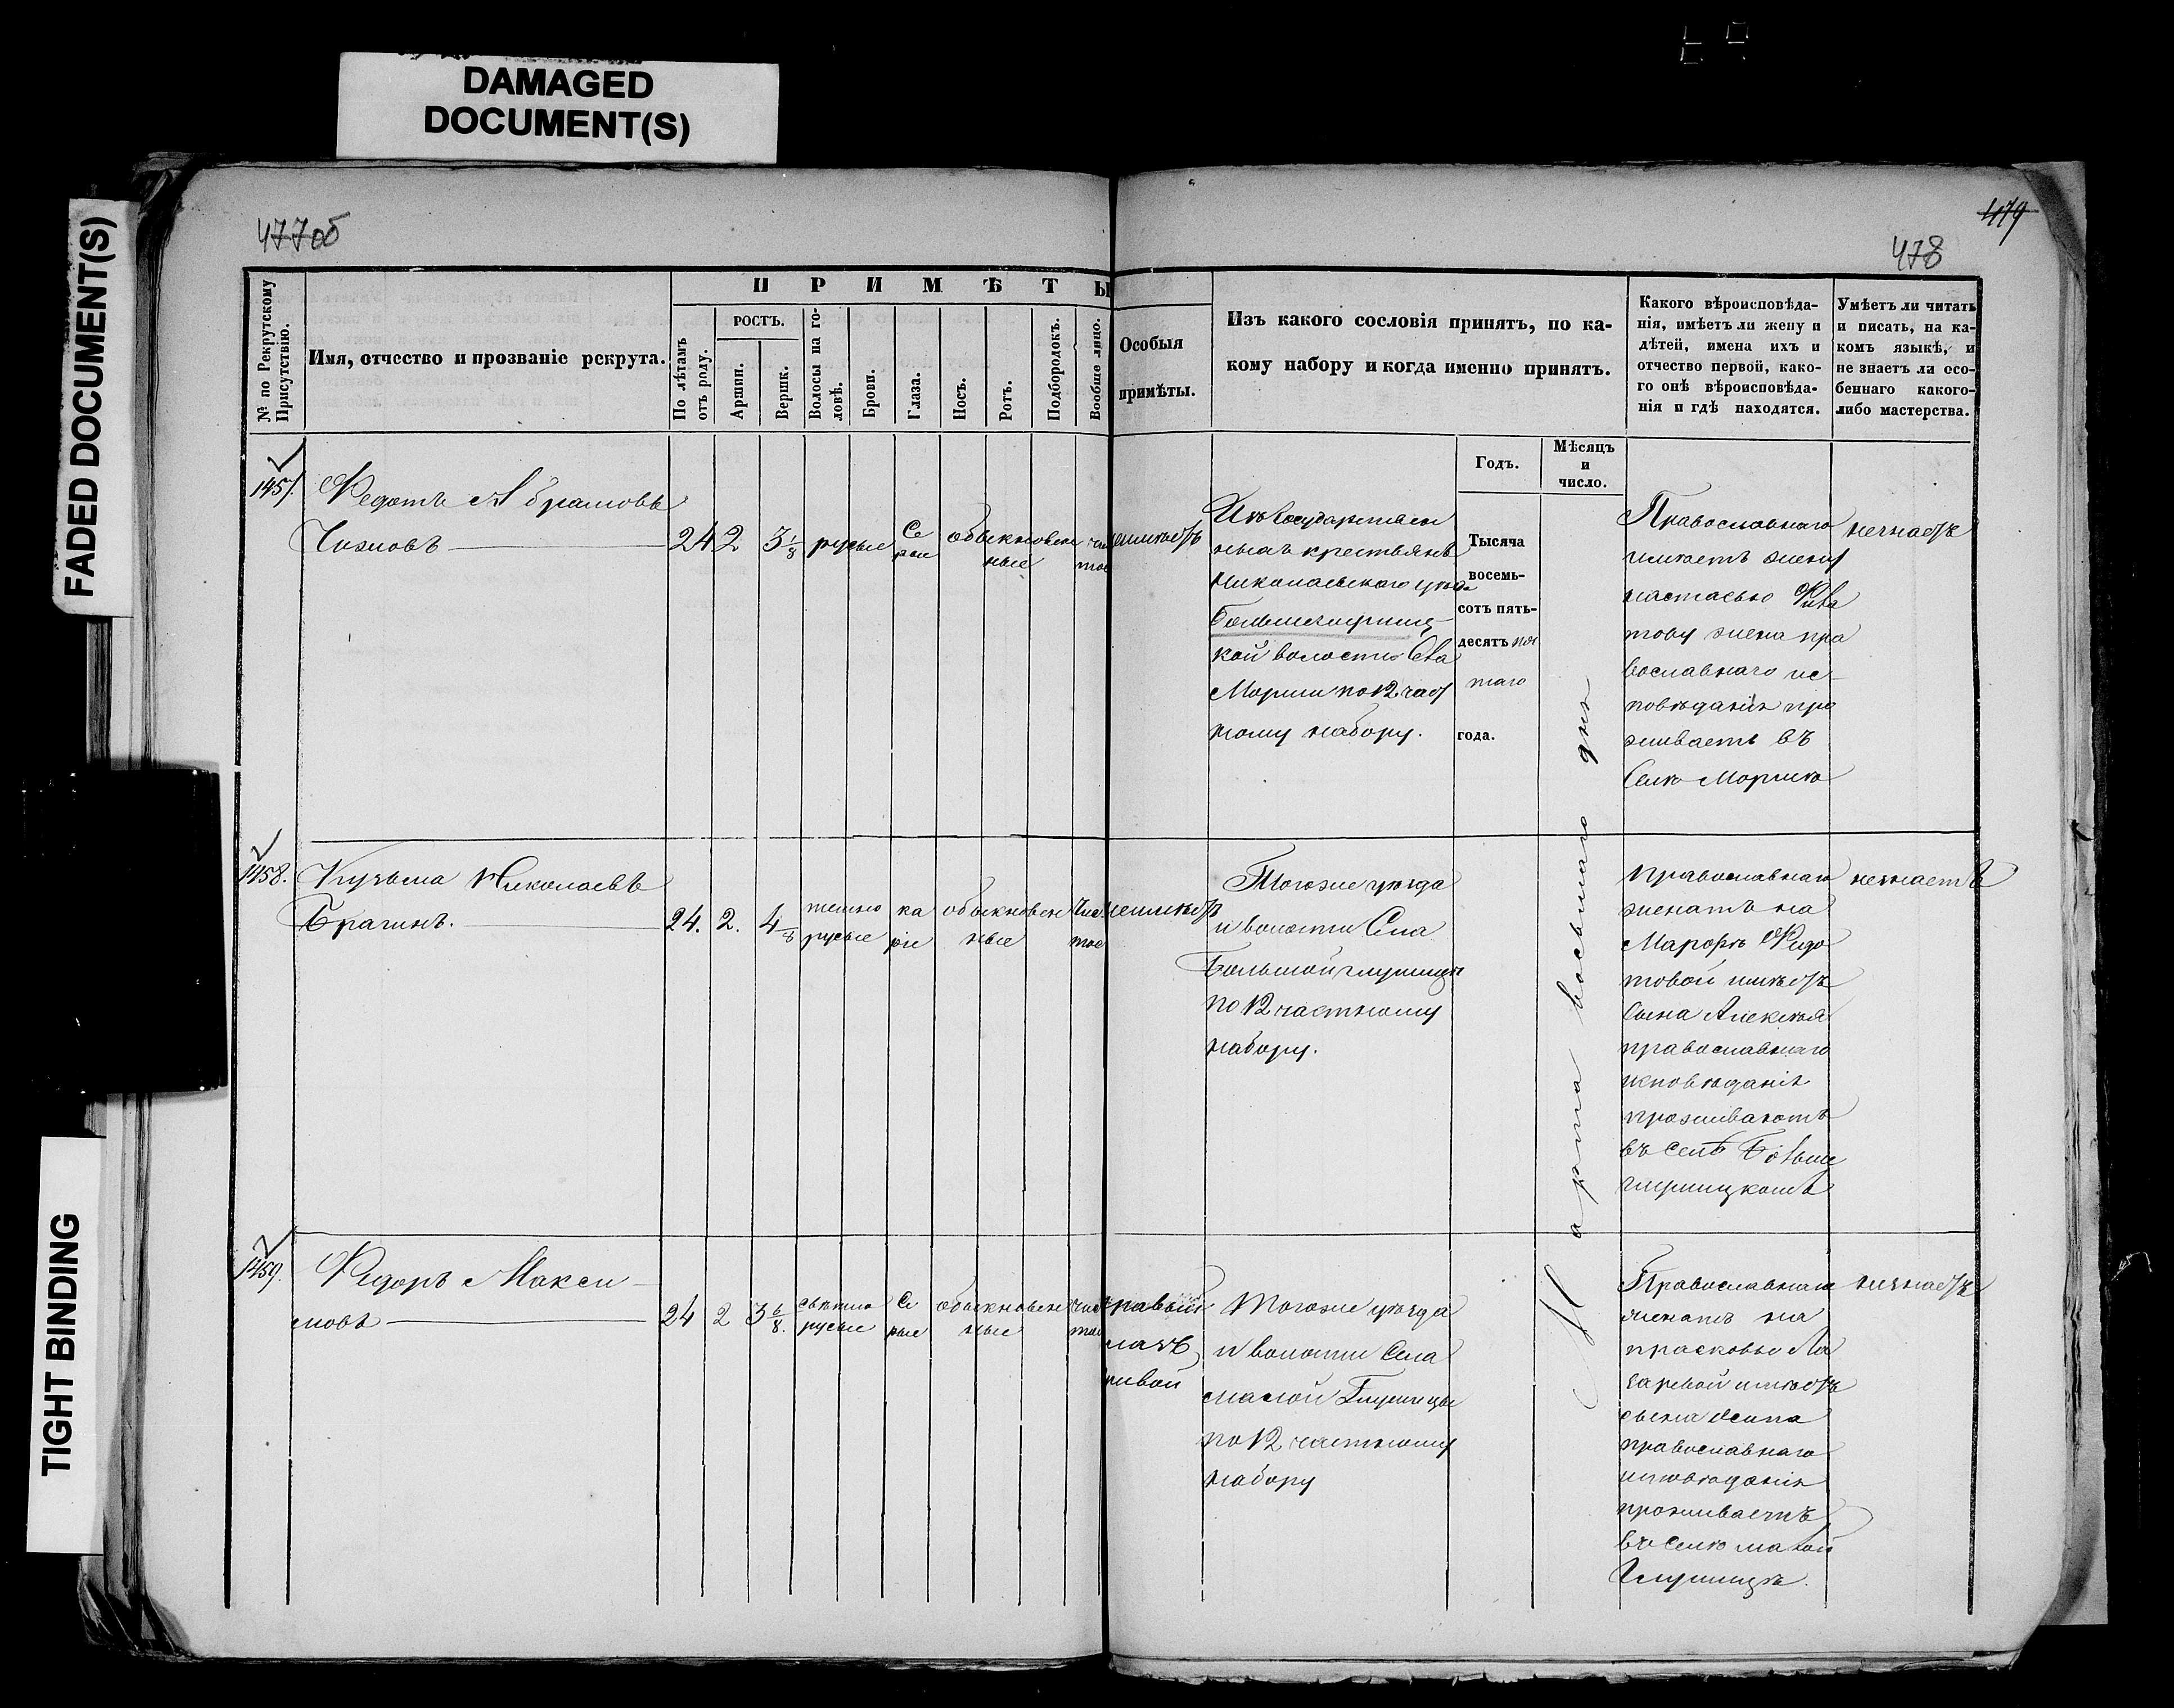 DAMAGED
DOCUMENT(S)
FADED DOCUMENT(S)
TIGHT BINDING
477об
479
478
№ по Рекрутскому
Присутствію.
Имя, отчество и прозваніе рекрута.
ПРИМѢТЫ
По лѣтамъ
отъ роду.
РОСТЪ.
Аршин.
Вершк.
Волосы на го-
ловѣ.
Брови.
Глаза.
Носъ.
Ротъ.
Подбородокъ.
Вообще лицо.
Особыя
примѣты.
Изъ какого сословія принятъ, по ка-
кому набору и когда именно принятъ.
Годъ.
Мѣсяцъ
и
число.
Какого вѣроисповѣда-
нія, имѣетъ ли жену и
дѣтей, имена ихъ и
отчество первой, како-
го онѣ вѣроисповѣда-
нія и гдѣ находятся.
Умѣетъ ли читать
и писать, на ка-
комъ языкѣ, и
не знаетъ ли осо-
беннаго какого-
либо мастерства.
1457.
Федотъ Абрамовъ
Чизновъ
24 2 3 1/8
русые
Се
рые
обыкновен
ные
чис
тое
неимѣетъ
Изъ Государствен
ныхъ крестьянъ
Николаевскаго уѣзда
Большеглушиц-
кой волости Села
Морши по 12 част
ному набору.
Тысяча
восемь-
сотъ пять-
десятъ пя
таго
года.
Марта восьмаго дня
Православнаго
имѣетъ жену
настасью
тову жена пра
вославнаго ис-
повѣданія про
живаетъ въ
Селѣ Моршѣ
незнаетъ
1458.
Кузьма Николаевъ
Брагинъ.
24. 2. 4
темно
русые
ка
ріе
обыкновен
ные
Чис
тое
неимѣетъ
Тогоже уѣзда
и волости Села
Большой глушицы
по 12 частному
набору.
Православнаго
женатъ на
Марфѣ Федо
товой имѣетъ
сына Алексѣя
православнаго
исповѣданія
проживаютъ
въ селѣ Больше
глушицкомъ
незнаетъ
1459.
Федоръ Макси-
мовъ
24 2 3 6/8.
свѣтло
русые
Се
рые
обыкновен
ные
чис
тое
правый
глазъ
кривой
Тогоже уѣзда
и волости Села
малой Глушицы
по 12 частному
набору
Православнаго
женатъ на
прасковье Ла
заревой имѣетъ
сына Осипа
православнаго
исповѣданія
проживаетъ
въ селѣ малой
Глушицѣ.
незнаетъ